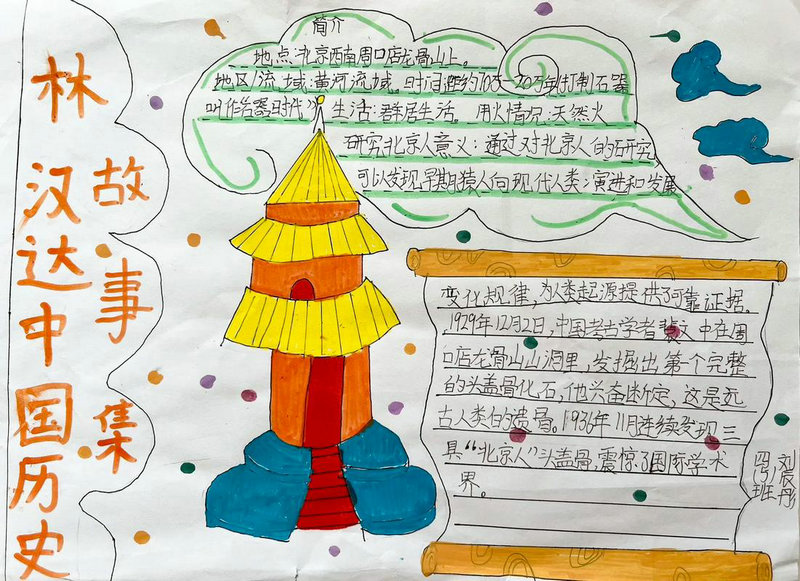 林汉达中国历史
故事集
简介
地点:北京西南周口店龙骨山上。
地区/流域:黄河流域。时间:距约70万-20万年(打制石器
叫作石器时代) 生活:群居生活。用火情况:天然火
研究北京人意义:通过对北京人的研究
可以发现早期猿人向现代人类:演进和发展
变化规律,为人类起源提供了可靠证据。
1929年12月2日,中国考古学者裴文中在周
口店龙骨山山洞里,发掘出第个完整
的头盖骨化石,他兴奋断定,这是远
古人类的遗骨。1936年11月连续发现三
具“北京人”头盖骨,震惊了国际学术
界。
四(5)班
刘辰彤